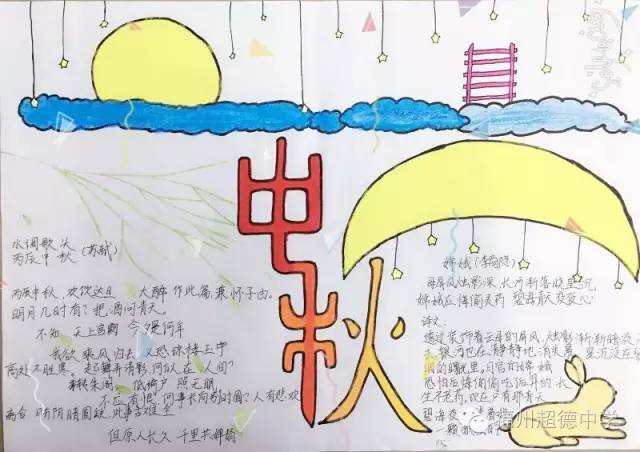 中秋
水调歌头
丙辰中秋(苏轼)
丙辰中秋,欢饮达旦 大醉 作此篇,兼怀子由。
明月几时有?把酒问青天。
不知 天上宫阙 今夕何年
我欲乘风归去 又恐琼楼玉宇
高处不胜寒。起舞弄清影,何似在人间
转朱阁 低绮户 照无眠
不应有恨,何事长向别时圆?人有悲欢
离合 月有阴晴圆缺,此事古难全
但原人长久 千里共婵娟
嫦娥(李商隐)
母屏风烛影深,长河渐落晓星沉
嫦娥应悔偷灵药 碧海青天夜夜心
译文:
透过装饰着云母的屏风,烛影渐渐暗淡下
银河也在静静地消失
的曙光里,月宫的嫦娥
恐怕后悔偷偷吃后羿的长
生不老药,现在只有那青天
碧海夜
一颗
心
州超德中学